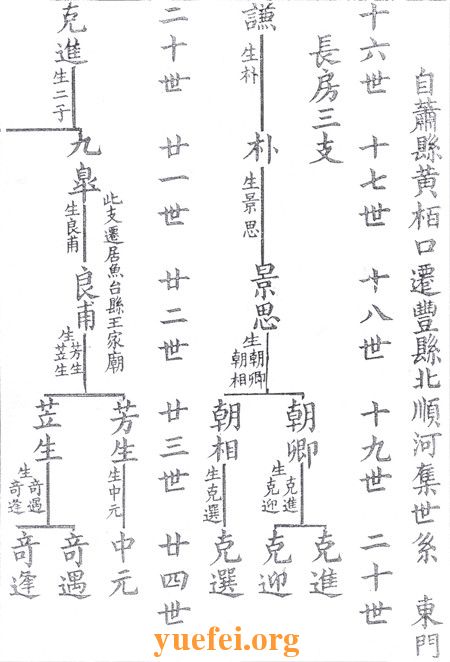 自蕭縣黃栢口遷豐縣北順河集世系 東門
十六世 十七世 十八世 十九世 二十世
長房三支
謙 生朴
朴 生景思
景思 生朝卿朝相
朝卿 生克進克迎
克進
克迎
朝相 生克選
克選
二十世 廿一世 廿二世 廿三世 廿四世
克進 生二子
九皐 生良甫
此支遷居魚台縣王家廟
良甫 生芳生苙生
芳生 生中元
中元
苙生 生竒遇竒逢
竒遇
竒逢
yuefei.org